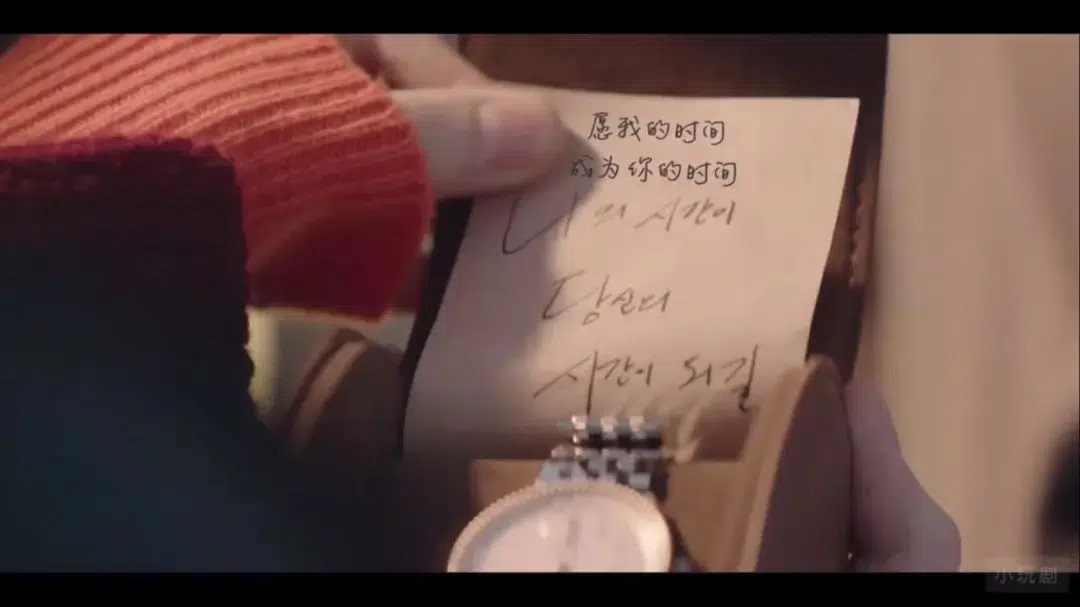 愿我的时间
成为你的时间
나의 시간이
당신의
시간이 되길
小玩剧